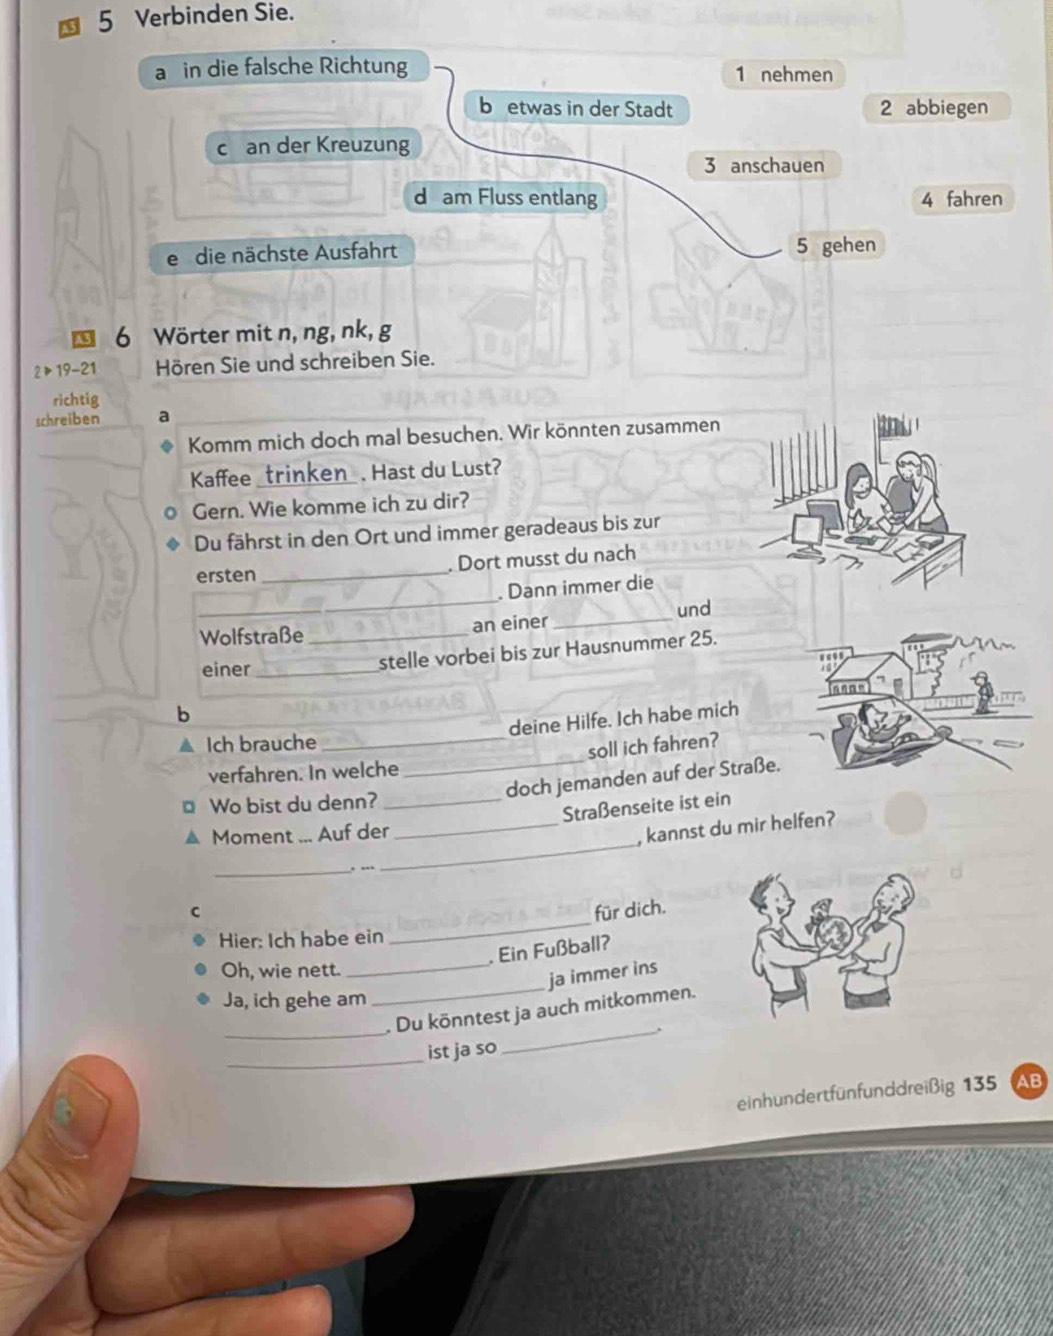 A3 5 Verbinden Sie.
a in die falsche Richtung
1 nehmen
b etwas in der Stadt
2 abbiegen
c an der Kreuzung
3 anschauen
d am Fluss entlang
4 fahren
e die nächste Ausfahrt
5 gehen
A3 6 Wörter mit n, ng, nk, g
2 ▶ 19–21 Hören Sie und schreiben Sie.
richtig
schreiben
a
◆ Komm mich doch mal besuchen. Wir könnten zusammen
Kaffee trinken. Hast du Lust?
o Gern. Wie komme ich zu dir?
◆ Du fährst in den Ort und immer geradeaus bis zur
ersten ____. Dort musst du nach
____. Dann immer die
Wolfstraße ____ an einer ____ und
einer ____stelle vorbei bis zur Hausnummer 25.
b
▲ Ich brauche ____ deine Hilfe. Ich habe mich
verfahren. In welche ____ soll ich fahren?
□ Wo bist du denn? ____ doch jemanden auf der Straße.
▲ Moment ... Auf der ____ Straßenseite ist ein
____. ... ____, kannst du mir helfen?
c
Hier: Ich habe ein ____ für dich.
Oh, wie nett. ____. Ein Fußball?
Ja, ich gehe am ____ ja immer ins
____. Du könntest ja auch mitkommen.
____ ist ja so ____.
einhundertfünfunddreißig 135 AB